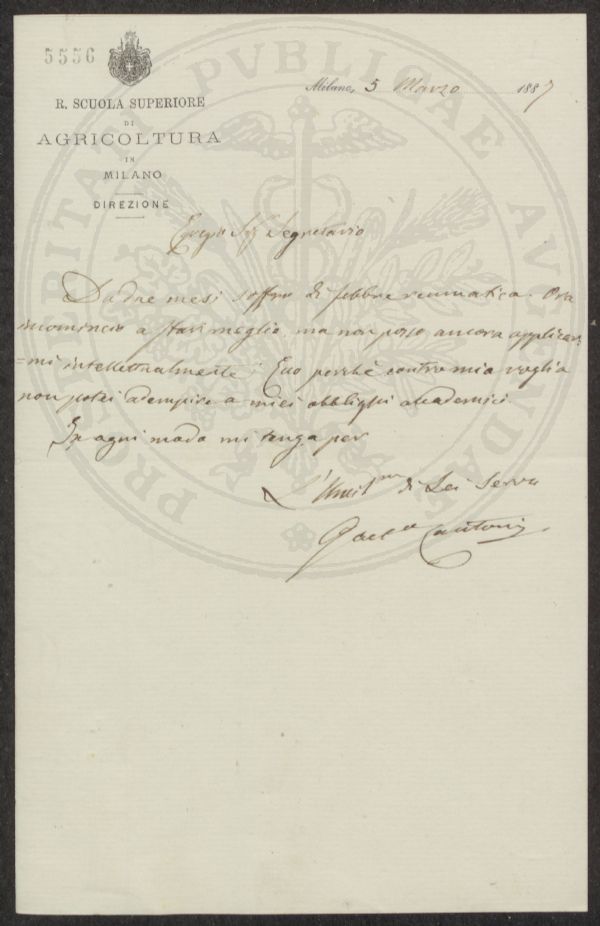 5556
R. SCUOLA SUPERIORE
DI
AGRICOLTURA
IN
MILANO
DIREZIONE
Milano, 5 Marzo 1887
Egregio Sig Segretario
Da due mesi soffro di febbre reumatica. Ora
incomincio a star meglio, ma non posso ancora applicar=
=mi intellettualmente. Ecco perchè contro mia voglia
non potei adempire a miei obblighi accademici
In ogni modo mi tenga per
L'Umil.mo di Lei Servo
Gaet.o Cantoni
PROSPERITATI PVBLICAE AVGENDAE